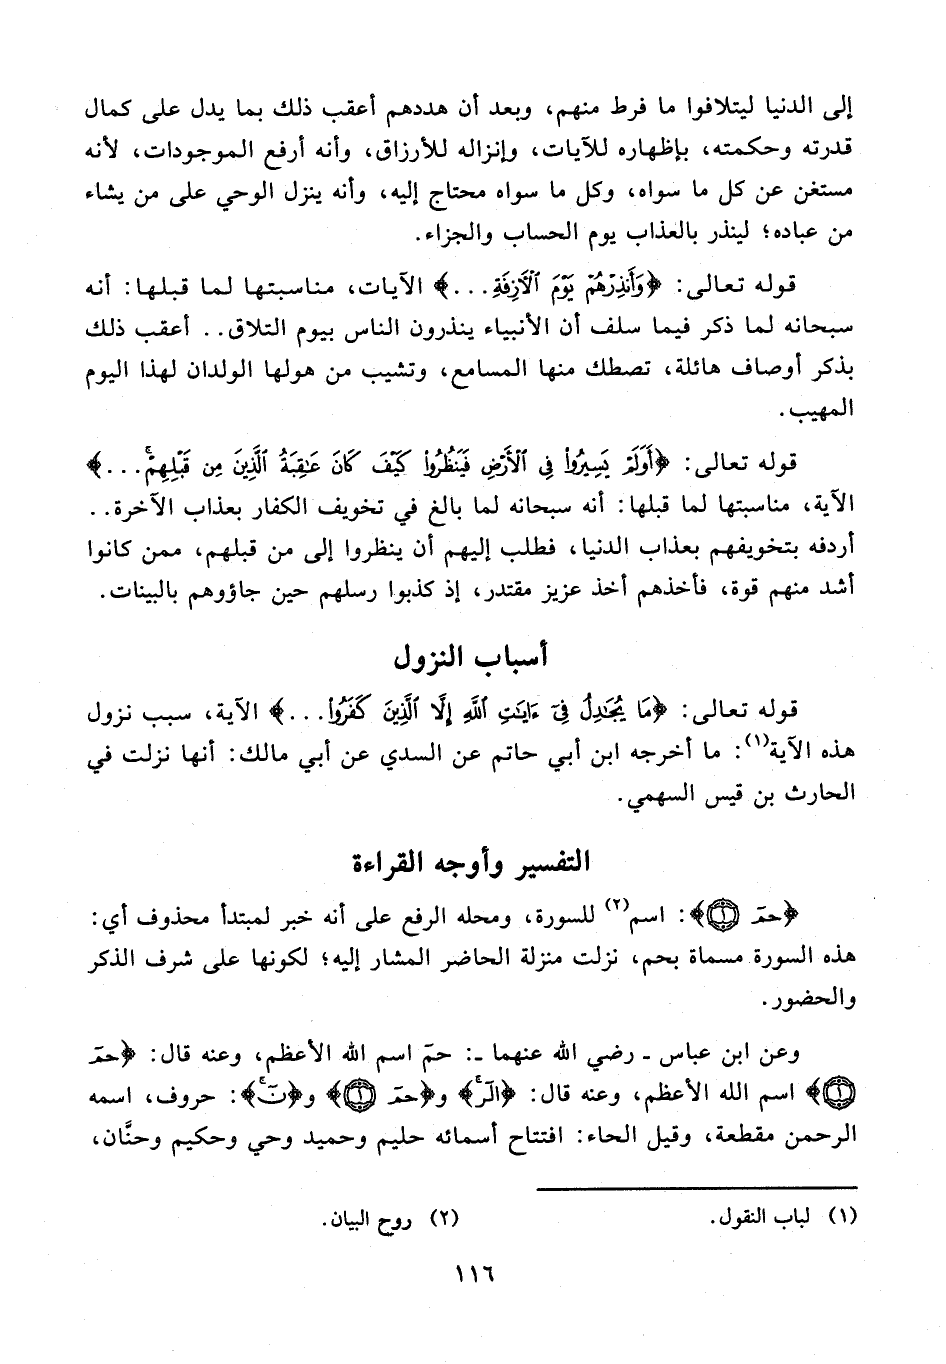 إلى الدنيا ليتلافوا ما فرط منهم، وبعد أن هددهم أعقب ذلك بما يدل على كمال
قدرته وحكمته، بإظهاره للآيات، وإنزاله للأرزاق، وأنه أرفع الموجودات، لأنه
مستغن عن كل ما سواه، وكل ما سواه محتاج إليه، وأنه ينزل الوحي على من يشاء
من عباده؛ لينذر بالعذاب يوم الحساب والجزاء.
قوله تعالى: ﴿وَأَنذِرْهُمْ يَوْمَ ٱلْأَزِفَةِ...﴾ الآيات، مناسبتها لما قبلها: أنه
سبحانه لما ذكر فيما سلف أن الأنبياء ينذرون الناس بيوم التلاق.. أعقب ذلك
بذكر أوصاف هائلة، تصطك منها المسامع، وتشيب من هولها الولدان لهذا اليوم
المهيب.
قوله تعالى: ﴿أَوَلَمْ يَسِيرُوا۟ فِى ٱلْأَرْضِ فَيَنظُرُوا۟ كَيْفَ كَانَ عَـٰقِبَةُ ٱلَّذِينَ مِن قَبْلِهِمْۚ...﴾
الآية، مناسبتها لما قبلها: أنه سبحانه لما بالغ في تخويف الكفار بعذاب الآخرة..
أردفه بتخويفهم بعذاب الدنيا، فطلب إليهم أن ينظروا إلى من قبلهم، ممن كانوا
أشد منهم قوة، فأخذهم أخذ عزيز مقتدر، إذ كذبوا رسلهم حين جاؤوهم بالبينات.
أسباب النزول
قوله تعالى: ﴿مَا يُجَـٰدِلُ فِىٓ ءَايَـٰتِ ٱللَّهِ إِلَّا ٱلَّذِينَ كَفَرُوا۟...﴾ الآية، سبب نزول
هذه الآية(١): ما أخرجه ابن أبي حاتم عن السدي عن أبي مالك: أنها نزلت في
الحارث بن قيس السهمي.
التفسير وأوجه القراءة
﴿حمٓ ١﴾: اسم(٢) للسورة، ومحله الرفع على أنه خبر لمبتدأ محذوف أي:
هذه السورة مسماة بحم، نزلت منزلة الحاضر المشار إليه؛ لكونها على شرف الذكر
والحضور.
وعن ابن عباس ـ رضي الله عنهما ـ: حمّ اسم الله الأعظم، وعنه قال: ﴿حمٓ
١﴾ اسم الله الأعظم، وعنه قال: ﴿الٓرۚ﴾ و﴿حمٓ ١﴾ و﴿نٓۚ﴾: حروف، اسمه
الرحمن مقطعة، وقيل الحاء: افتتاح أسمائه حليم وحميد وحي وحكيم وحنَّان،
(١) لباب النقول.
(٢) روح البيان.
١١٦